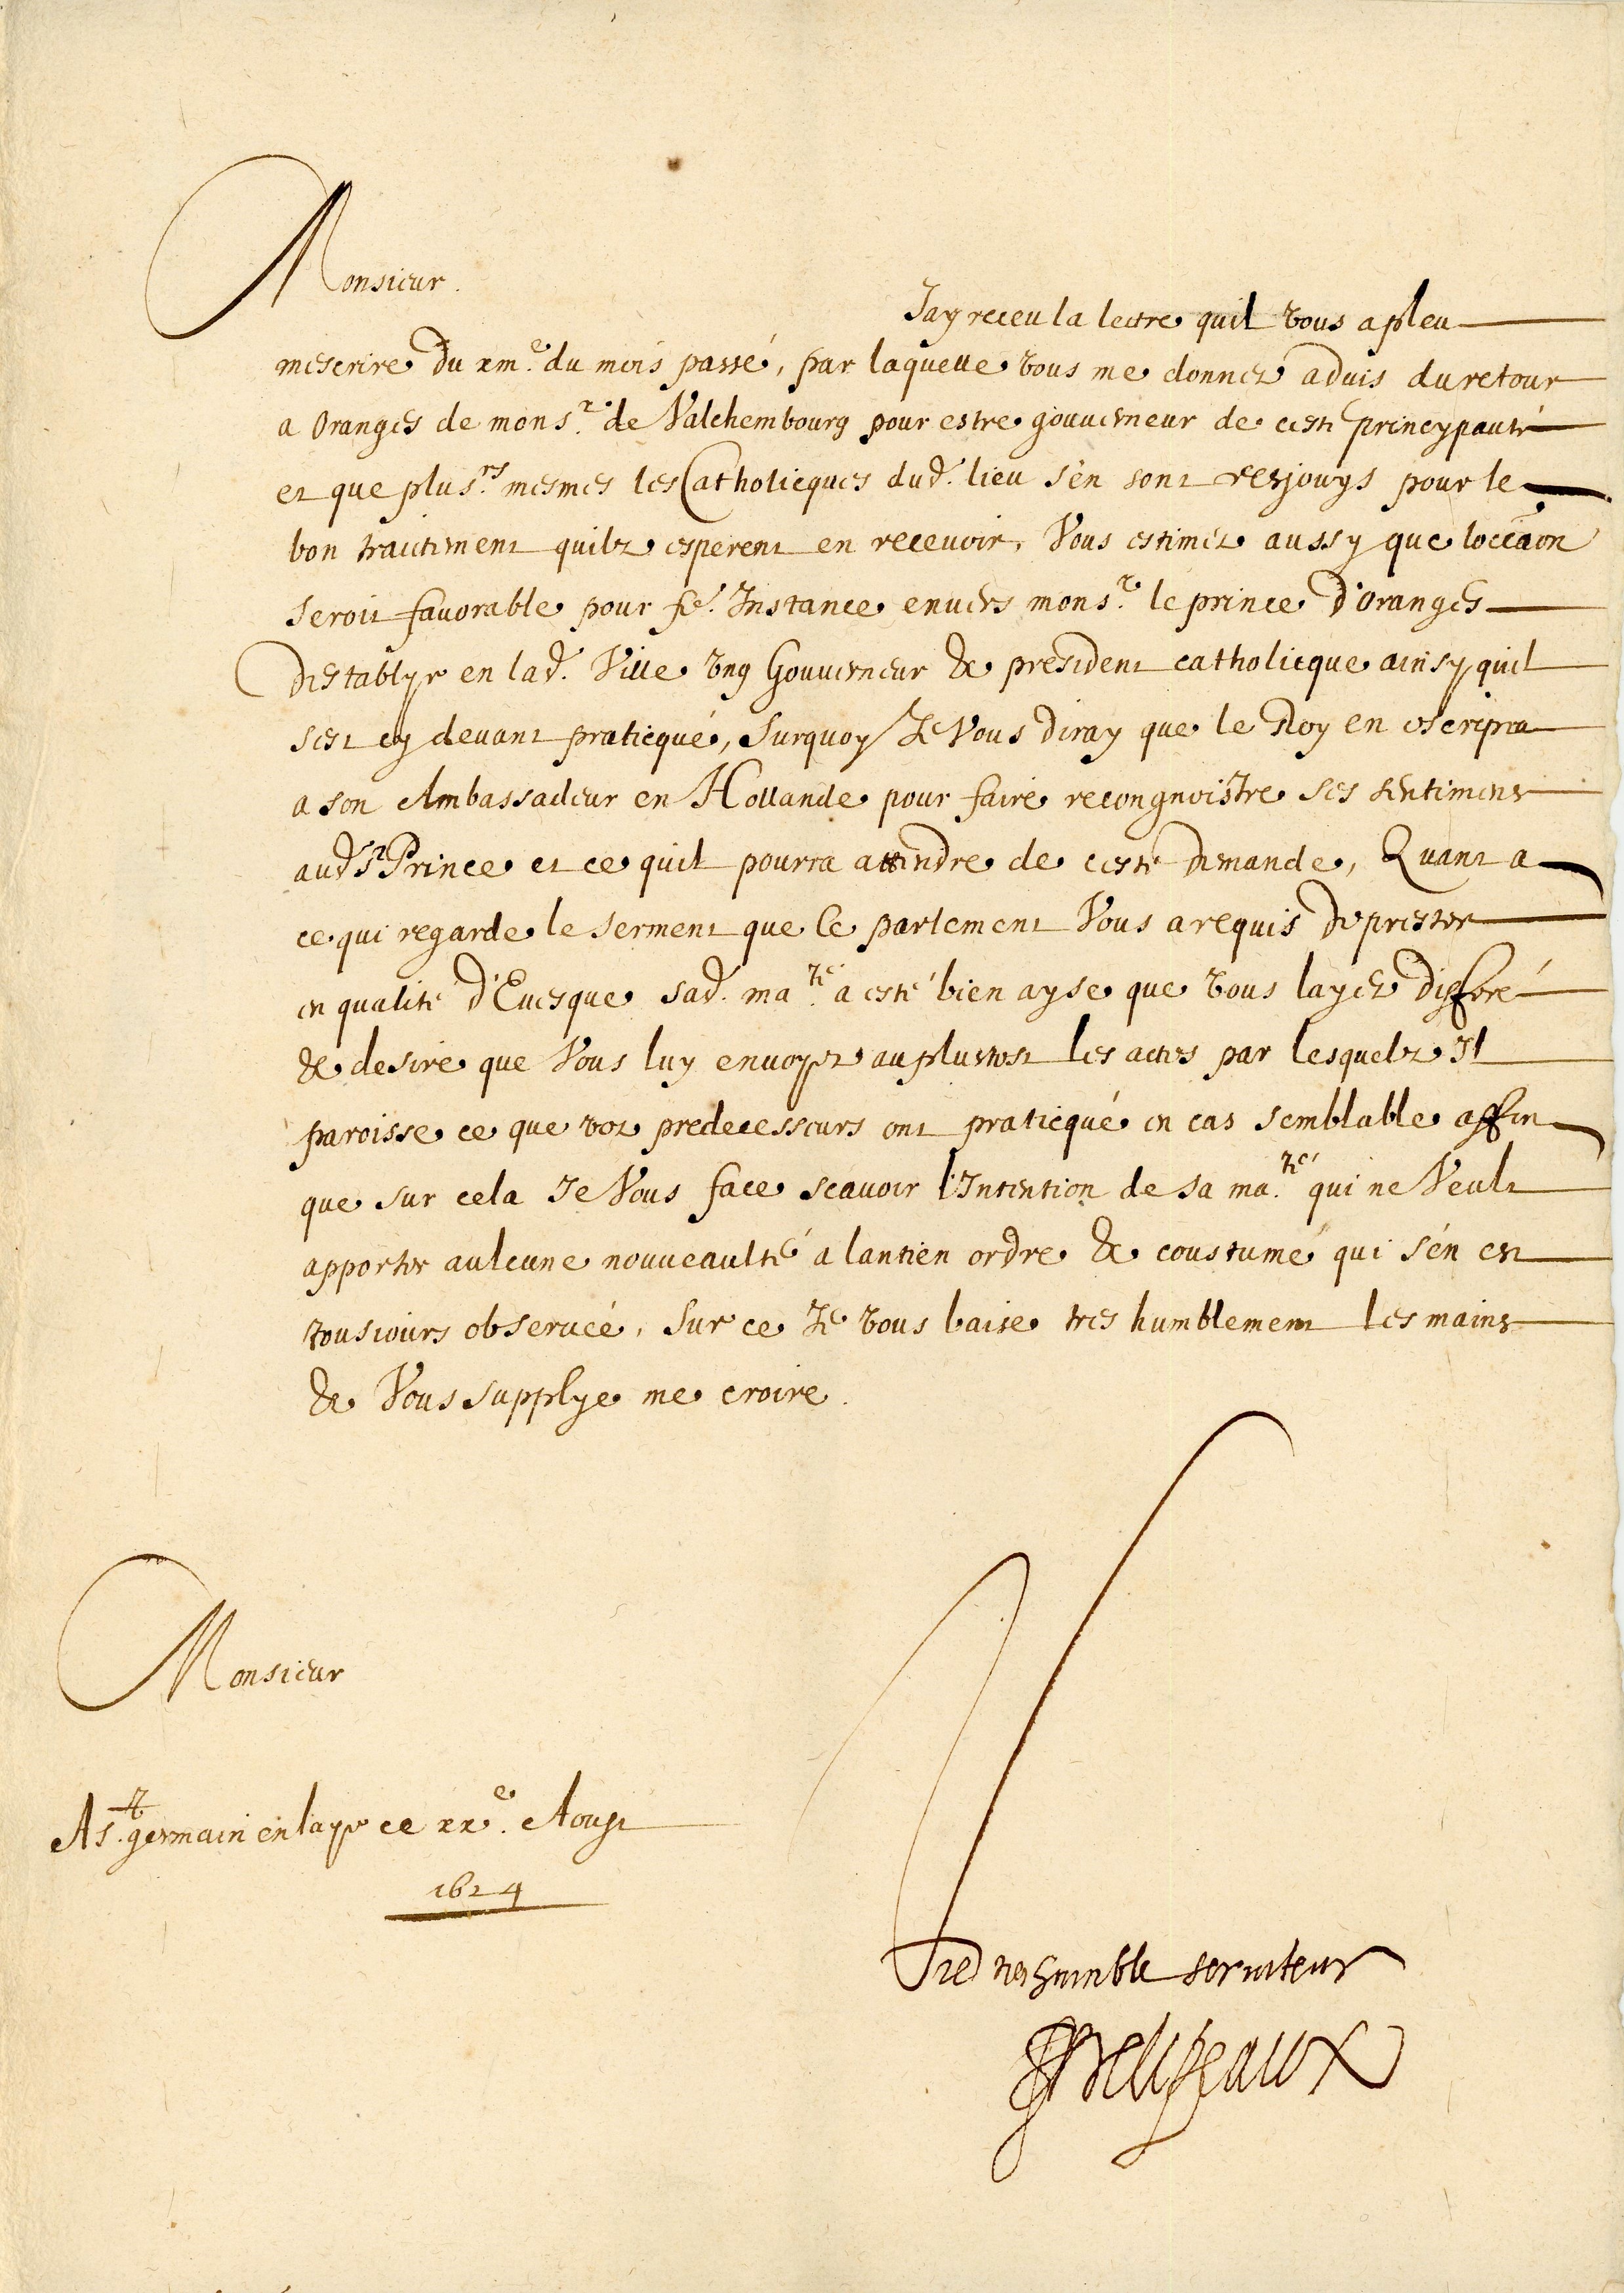 Monsieur.
Jay receu la lettre quil vous a pleu
mescrire du xiii.e du mois passé, par laquelle vous me donnez advis du retour
a Oranges de mons.r de Valchembourg pour estre gouverneur de ceste princypauté
et que plus.rs mesmes les Catholicques dud. lieu s'en sont resjouys pour le
bon traictement quilz esperent en recevoir, Vous estimez aussy que loccaon
seroit favorable pour fe. Instance envers mons.r le prince d'Oranges
destablyr en lad. Ville vng Gouverneur & president catholicque ainsy quil
sest cy devant praticqué, Surquoy Je Vous diray que le Roy en escripra
a son Ambassadeur en Hollande pour faire recongnoistre ses sentimens
aud. Sr Prince et ce quil pourra attendre de ceste demande, Quant a
ce qui regarde le serment que le parlement Vous a requis de prester
en qualité d'Evesque sad. ma.té a esté bien ayse que vous layez differé
& desire que Vous luy envoyez au plustost les actes par lesquelz Il
paroisse ce que voz predecesseurs ont praticqué en cas semblable affin
que sur cela Je Vous face scavoir l'Intention de sa ma.té qui ne Veult
apporter aulcune nouveaulté a lantien ordre & coustume qui s'en est
tousiours observcé, Sur ce Je vous baise tres humblement les mains
& Vous supplye me croire.
Monsieur
A S.t germain en laye ce xx.e Aoust
1624
Vre tres humble serviteur
Phelipeaux